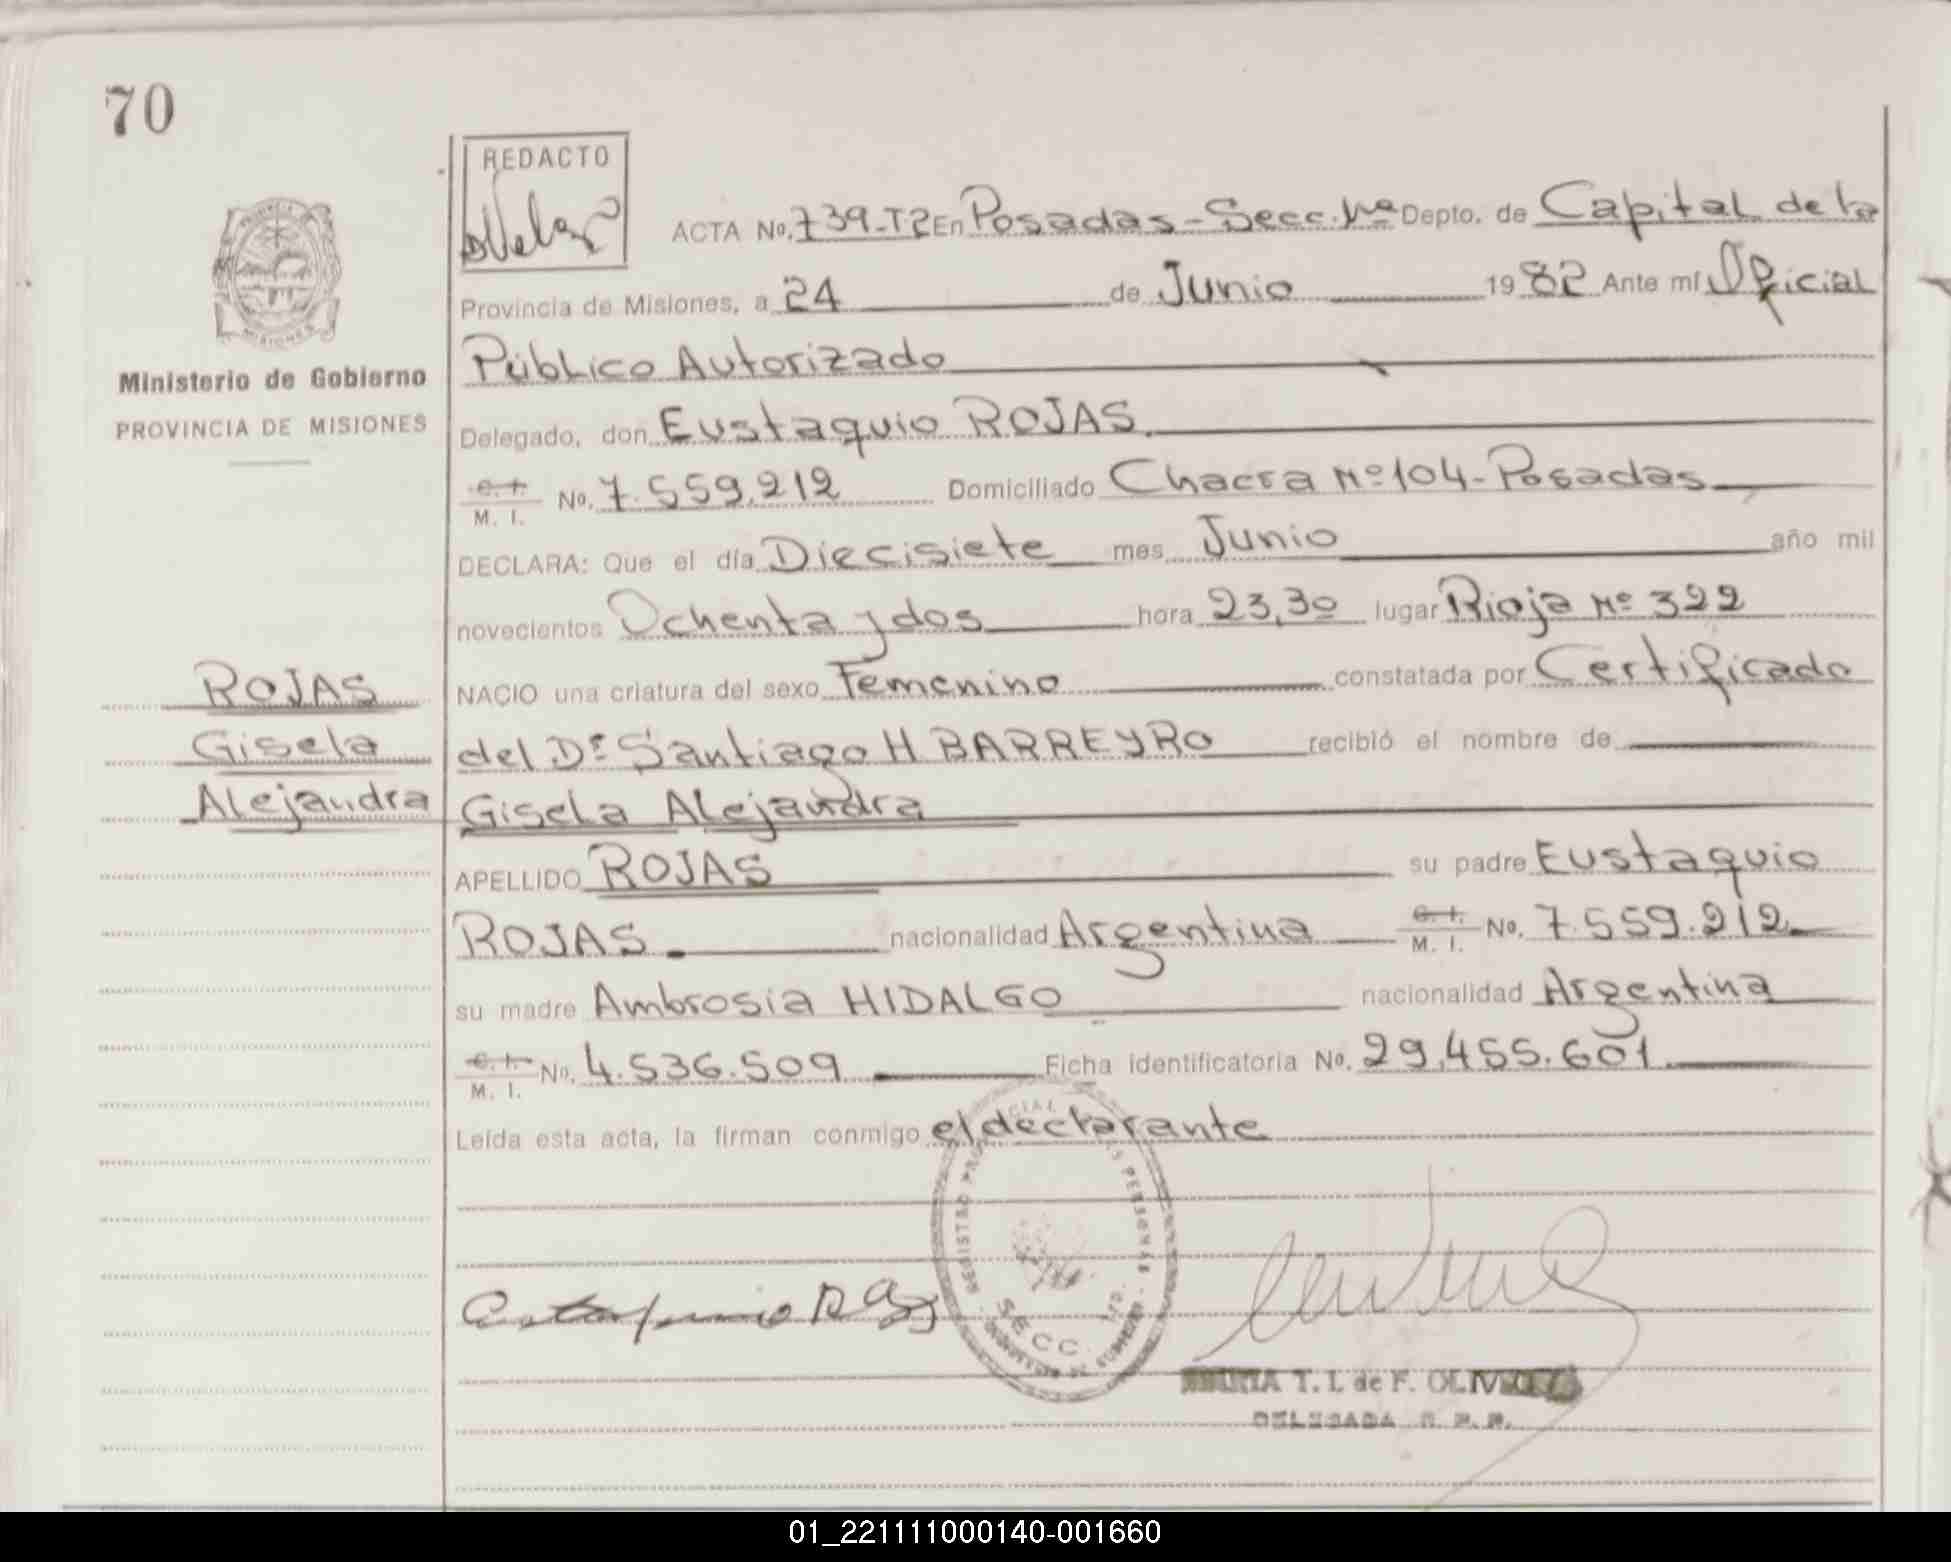 70
REDACTO
ACTA No. 739-T2 En Posadas - Secc. 1ª Depto. de Capital de la
Provincia de Misiones, a 24 de Junio 1982 Ante mí Oficial
Ministerio de Gobierno
PROVINCIA DE MISIONES
Público Autorizado
Delegado, don Eustaquio ROJAS.
C. I. M. I. No. 7.559.212 Domiciliado Chacra Nº 104 - Posadas
DECLARA: Que el día Diecisiete mes Junio año mil
novecientos Ochenta y dos hora 23,30 lugar Rioja Nº 322
NACIO una criatura del sexo Femenino constatada por Certificado
del Dr Santiago H BARREYRO recibió el nombre de
Gisela Alejandra
ROJAS
Gisela
Alejandra
APELLIDO ROJAS su padre Eustaquio
ROJAS. nacionalidad Argentina C. I. M. I. No. 7.559.212
su madre Ambrosia HIDALGO nacionalidad Argentina
C. I. M. I. No. 4.536.509 Ficha identificatoria No. 29.455.601
Leída esta acta, la firman conmigo el declarante
REGISTRO PERSONAS
SECC.
T. I. de F.
DELEGADA R. P. P.
01_221111000140-001660